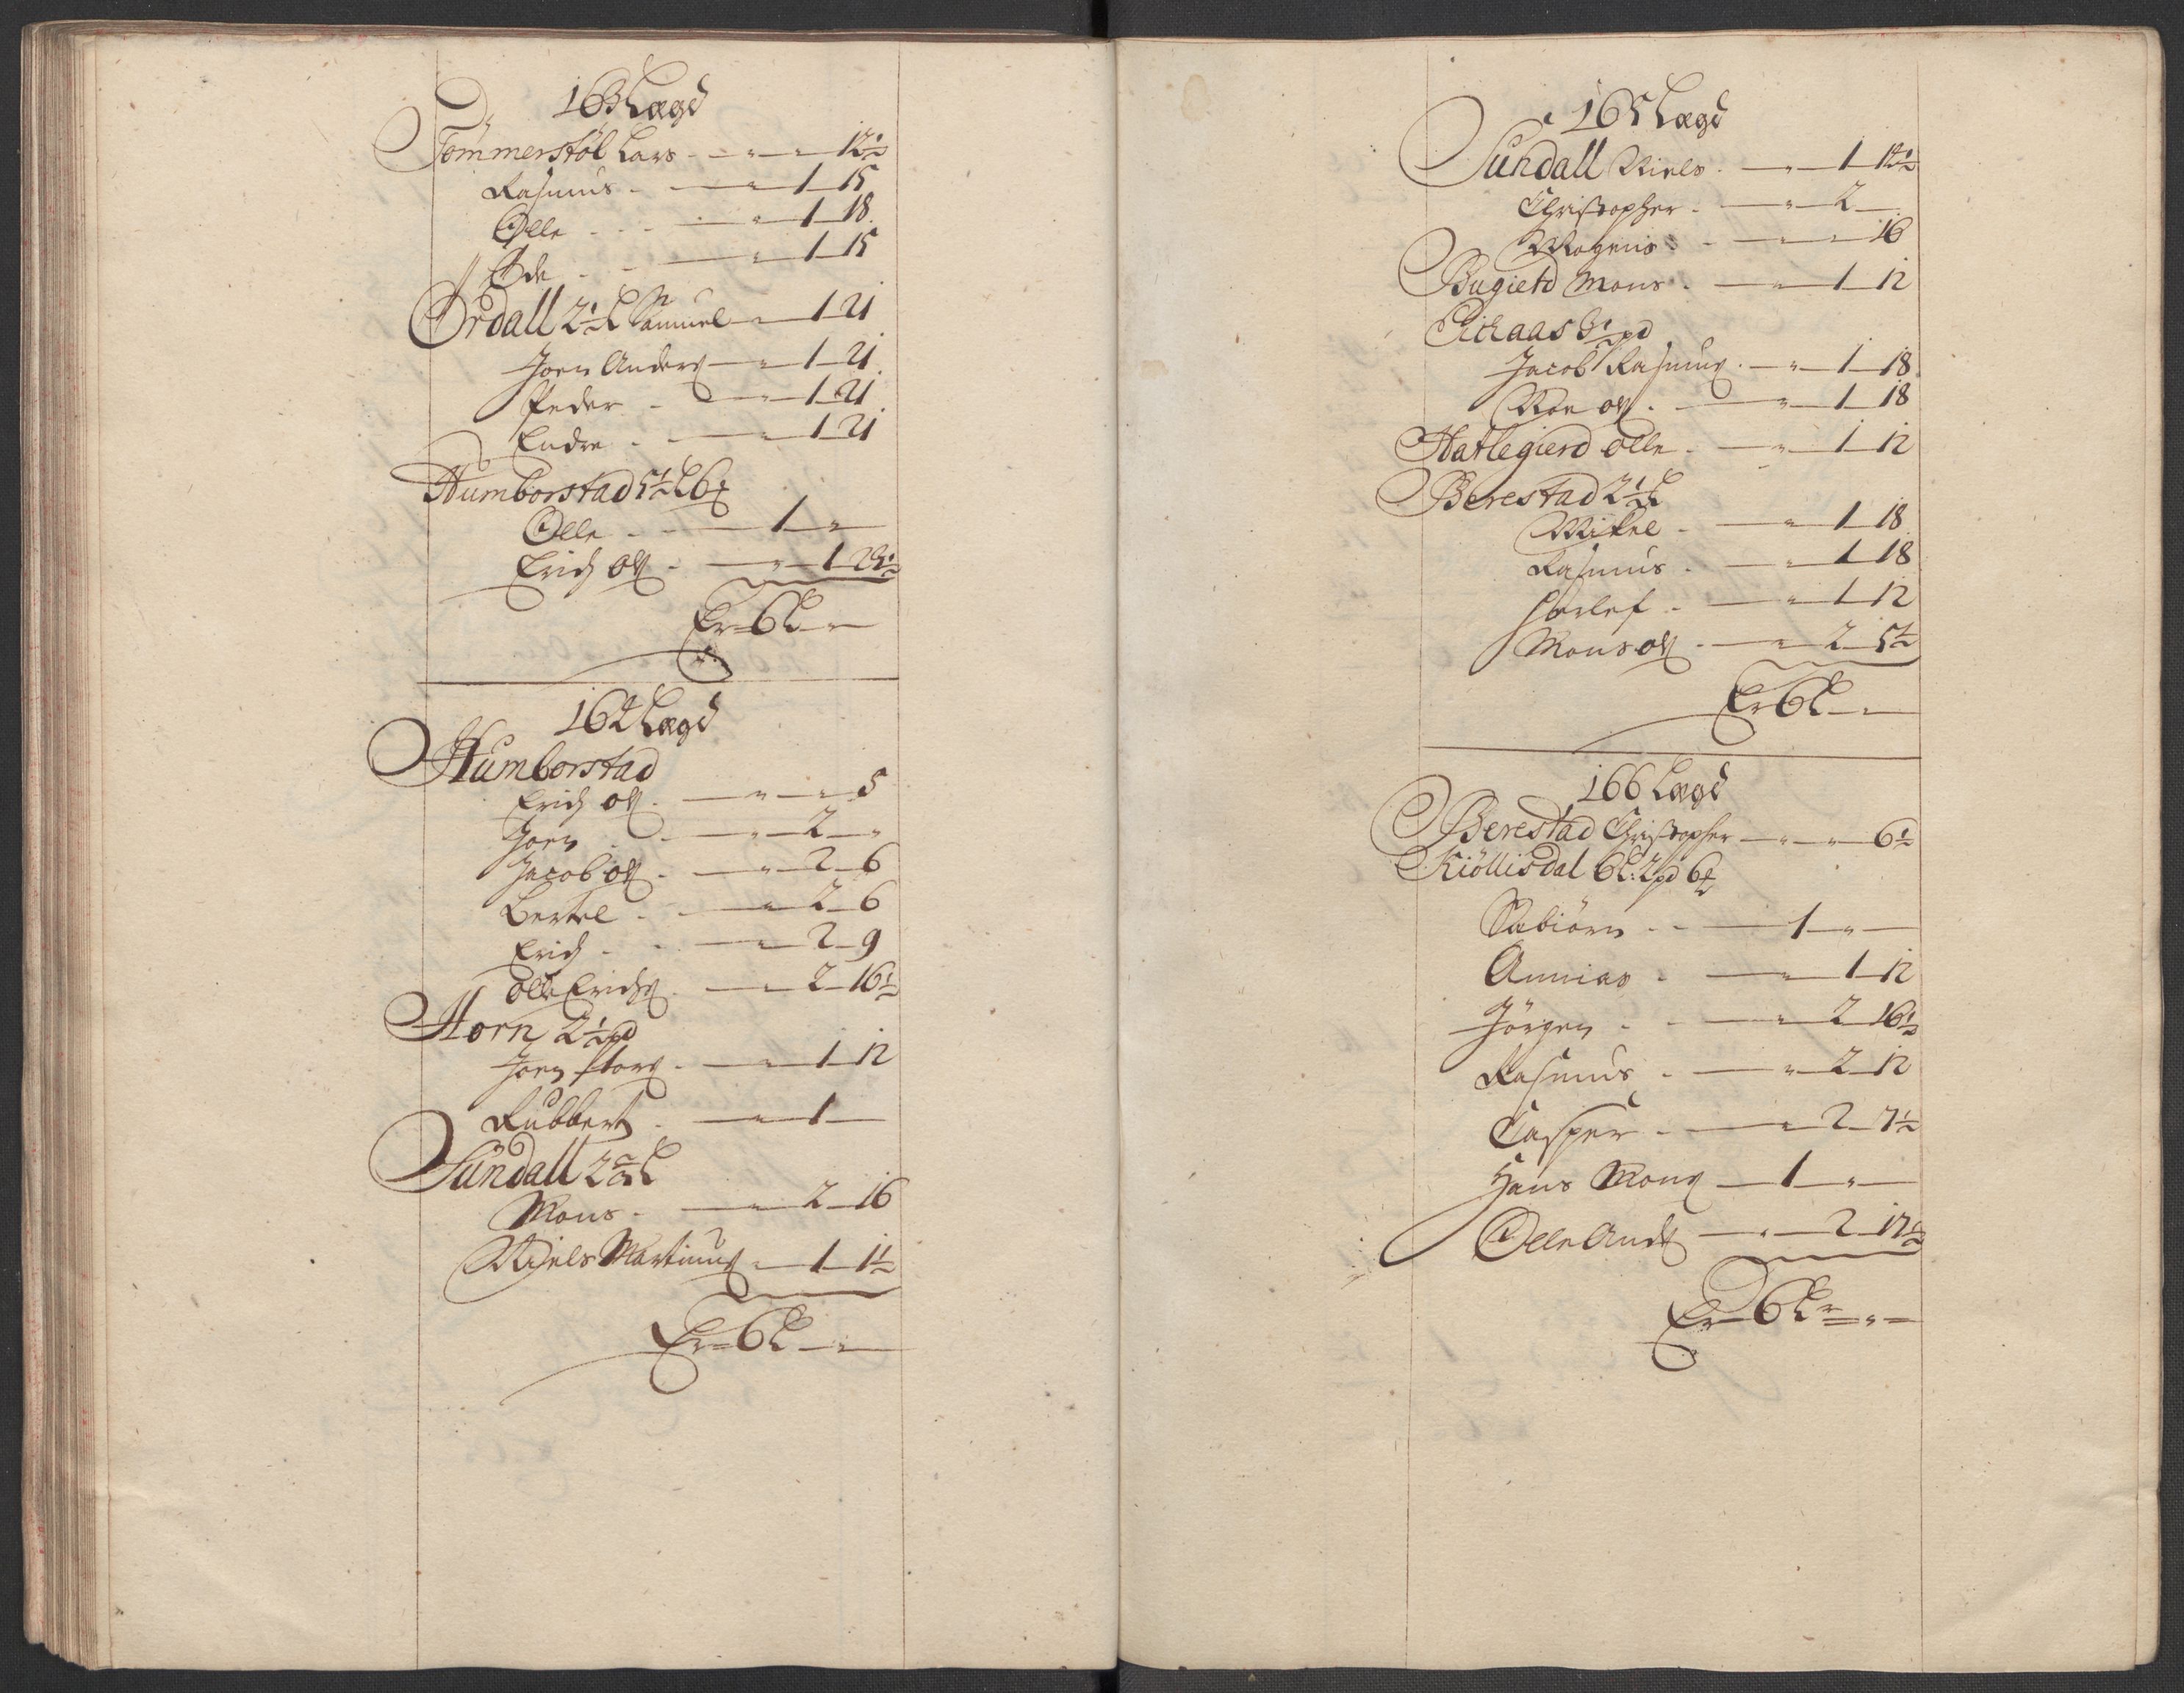 163 Lægd
Tømmerstøl Lars - " - " - 12½
Rasmus - " 1 - 15
Olle - - " 1 - 18
Ode - " 1 - 15
Ørdall 2½ L Samuel - " 1 - 21
Joen Anders - " 1 - 21
Peder - " 1 - 21
Endre - " 1 - 21
Humborstad 5½ L 6
Olle - - 1 - "
Erich Ols - " 1
Er 6 L - "
164 Lægd
Humborstad
Erich Ols - " - " 5
Joen - " 2 - "
Jacob Ols - " 2 - 6
Bertel - " 2 - 6
Erich - - " 2 - 9
Olle Erichs - " 2 - 16½
Horn 2½ pd
Joen - " 1 - 12
Rubbert - " 1 -
Sundall 2 L
Mons - " 2 - 16
Niels Martinus - " 1 - 1½
Er 6 L - "
165 Lægd
Sundall Niels - " 1 - 14½
Christopher - " 2 -
Mogens - " - 16
Bugietd Mons - " 1 - 12
Eichaas 3½ pd
Jacob Rasmus - " 1 - 18
Roe Ols - " 1 - 18
Hatlegierd Olle - " 1 - 12
Berestad 2½ L
Mikel - " 1 - 18
Rasmus - " 1 - 18
- " 1 - 12
Mons Ols - " 2 - 5½
Er 6 L - "
166 Lægd
Berestad Christopher - " - " 6½
Kiöllisdal 6 L: 2 pd 6
Sabiörn - - 1 - " -
Annias - " 1 - 12
Jörgen - - " 2 - 16½
Rasmus - " 2 - 12
Casper - " 2 - 7½
Hans Mons - 1 - " -
Olle Ands - " 2 - 17½
Er 6 L - " -